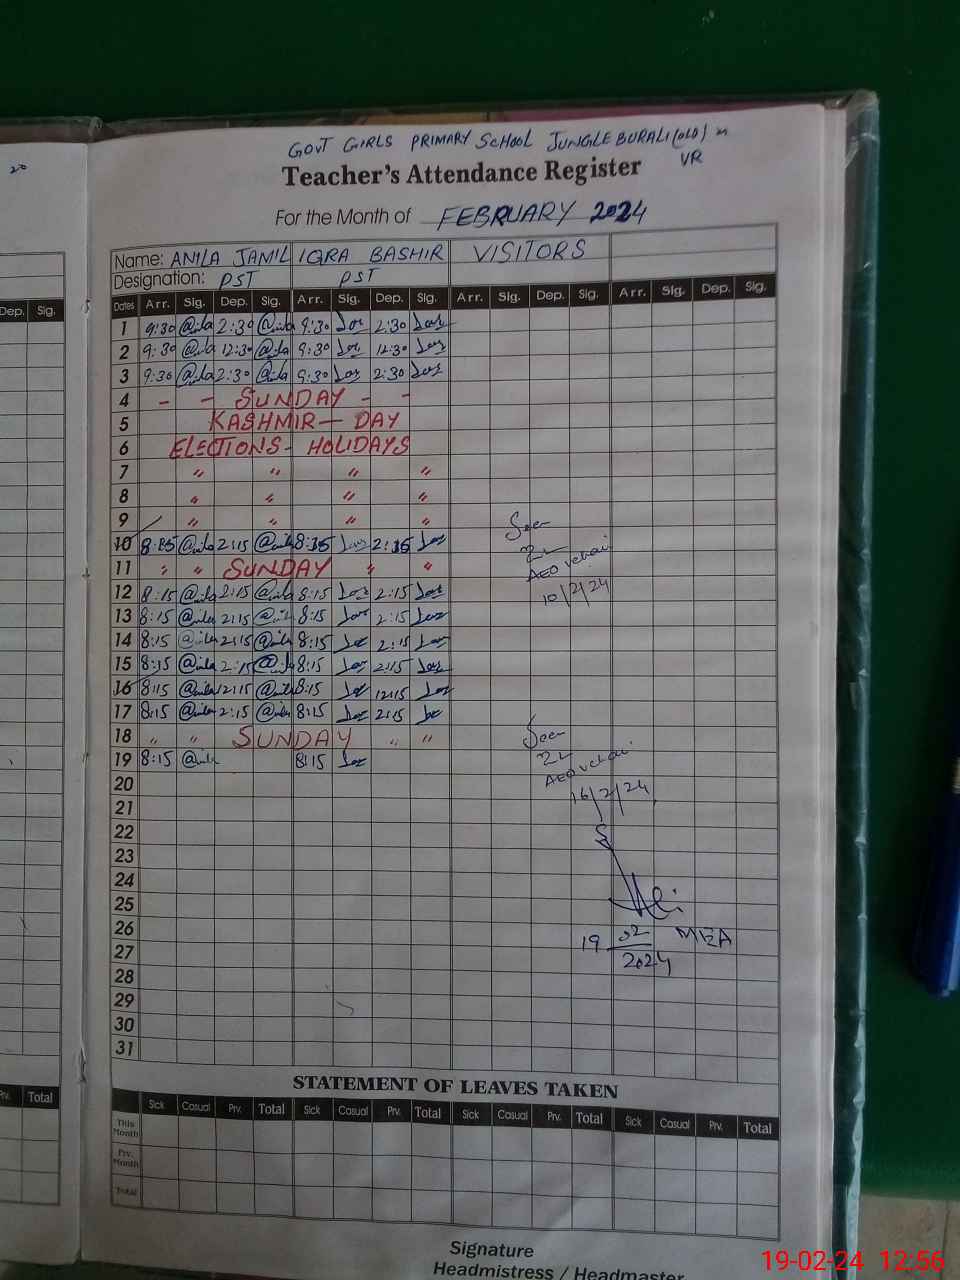 20
GOVT GIRLS PRIMARY SCHOOL JUNGLE BURALI (OLD)
VR
Teacher's Attendance Register
For the Month of FEBRUARY 2024
Name: ANILA JAMIL IQRA BASHIR VISITORS
Designation: PST PST
Dep. Sig. Dates Arr. Sig. Dep. Sig. Arr. Sig. Dep. Sig. Arr. Sig. Dep. Sig. Arr. Sig. Dep. Sig.
1 9:30 @nila 2:30 @nila 9:30 2:30
2 9:30 @nila 12:30 @nila 9:30 12:30
3 9:30 @nila 2:30 @nila 9:30 2:30
4 - - SUNDAY - -
5 KASHMIR — DAY
6 ELECTIONS - HOLIDAYS
7 " " " "
8 " " " "
9 " " " "
Seen
10 @nila 2:15 @nila
AEO vehari
11 " " SUNDAY " "
10/2/24
12 8:15 @nila 2:15 @nila 8:15 2:15
13 8:15 @nila 2:15 @nila 8:15 2:15
14 8:15 @nila 2:15 @nila 8:15 2:15
15 8:15 @nila 2:15 @nila 8:15 2:15
16 8:15 @nila 12:15 @nila 8:15 12:15
17 8:15 @nila 2:15 @nila 8:15 2:15
18 " " SUNDAY " "
Seen
19 8:15 @nila 8:15
AEO vehari
20
16/2/24
21
22
23
24
25
Ali
26
19 02 MEA
27
2024
28
29
30
31
STATEMENT OF LEAVES TAKEN
Prv. Total Sick Casual Prv. Total Sick Casual Prv. Total Sick Casual Prv. Total Sick Casual Prv. Total
This Month
Prv. Month
Total
Signature
Headmistress / Headmaster
19-02-24 12:56